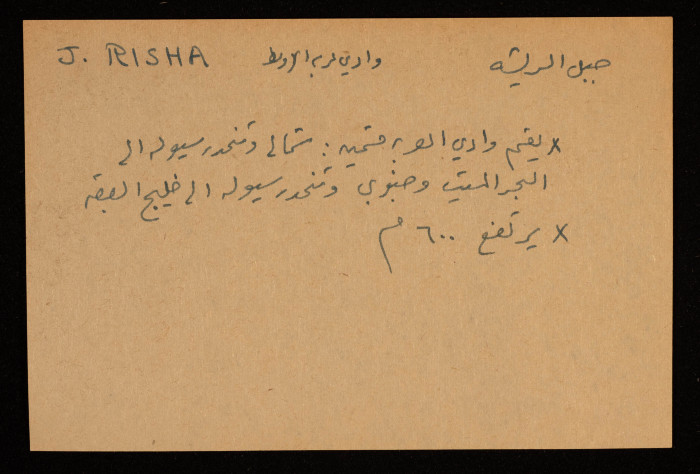 جبل الريشه وادي عربه الاوسط J. RISHA
x يقسم وادي العربه قسمين : شمالي وتنحدر سيوله الى
البحر الميت وجنوبي وتنحدر سيوله الى خليج العقبه
x يرتفع ٦٠٠ م